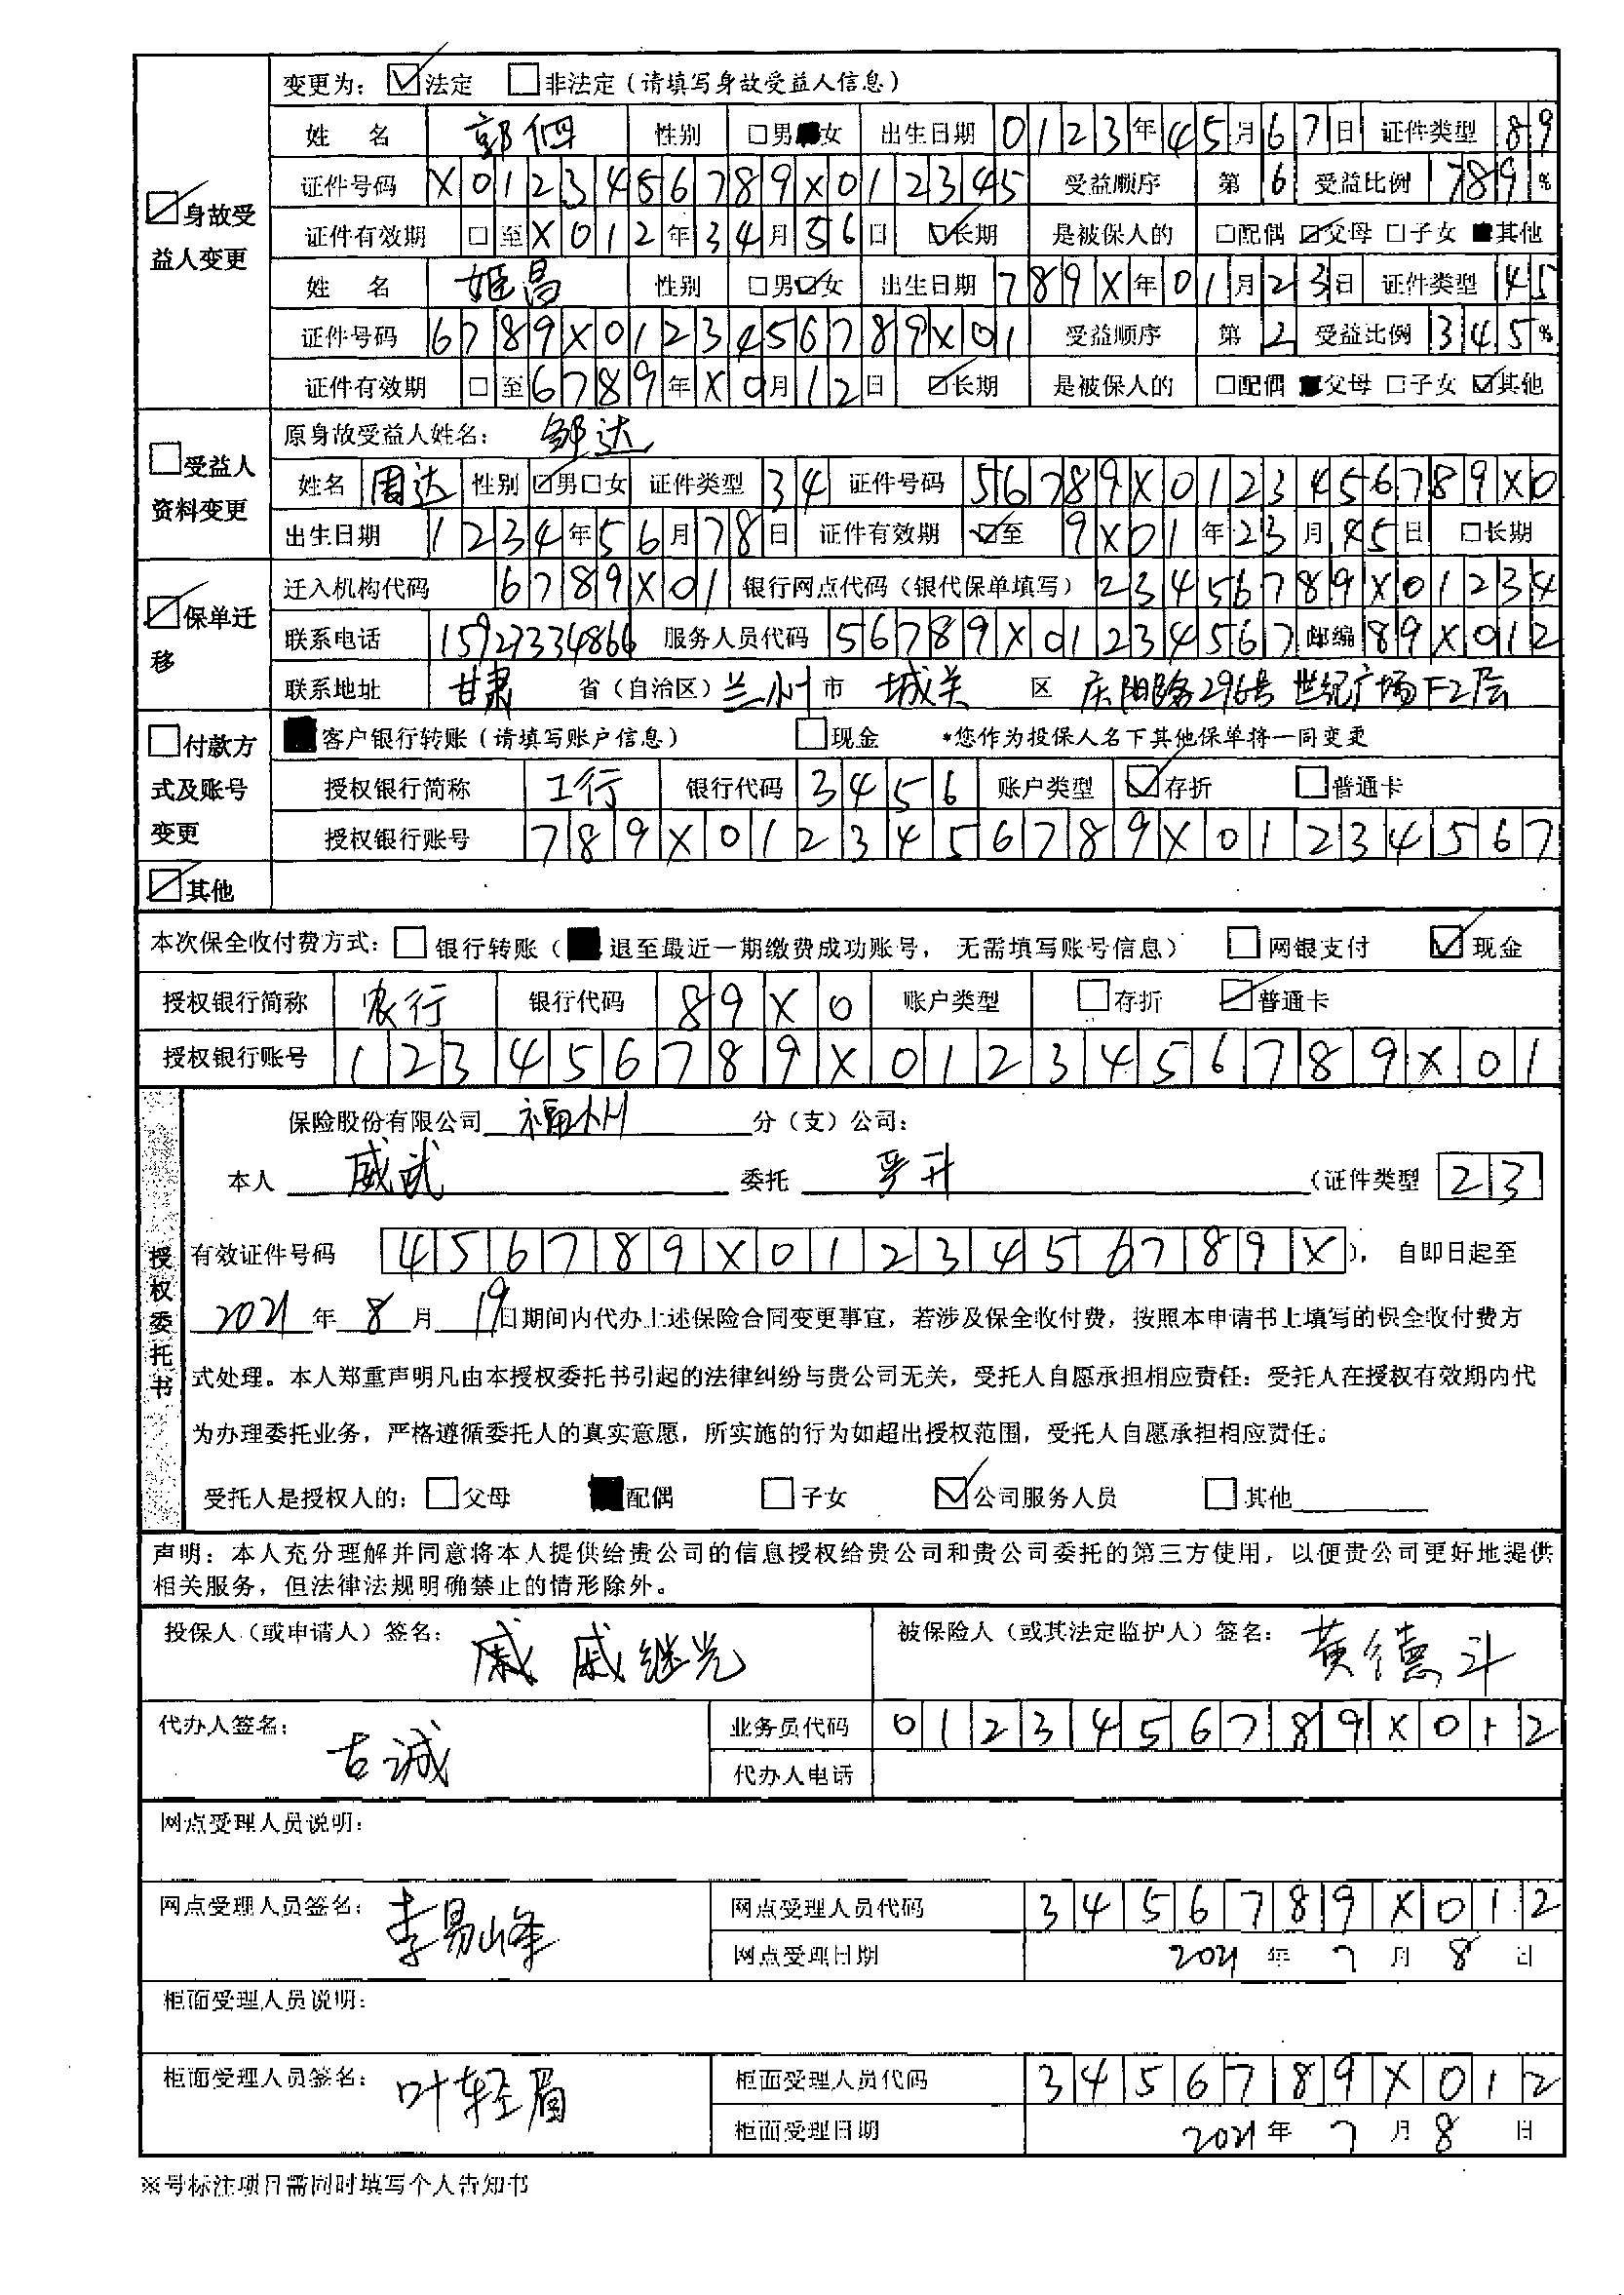 变更为：☑法定 □非法定（请填写身故受益人信息）
☑身故受益人变更
姓名 郭伵 性别 □男■女 出生日期 0123年45月67日 证件类型 89
证件号码 X0123456789X012345 受益顺序 第6 受益比例 789%
证件有效期 □至X012年34月56日 ☑长期 是被保人的 □配偶 ☑父母 □子女 ■其他
姓名 姬昌 性别 □男☑女 出生日期 789X年01月23日 证件类型 45
证件号码 6789X0123456789X01 受益顺序 第2 受益比例 345%
证件有效期 □至6789年X0月12日 ☑长期 是被保人的 □配偶 ■父母 □子女 ☑其他
□受益人资料变更
原身故受益人姓名： 邹达
姓名 周达 性别 ☑男□女 证件类型 34 证件号码 56789X0123456789X0
出生日期 1234年56月78日 证件有效期 ☑至 9X01年23月45日 □长期
☑保单迁移
迁入机构代码 6789X01 银行网点代码（银代保单填写）23456789X01234
联系电话 15927334866 服务人员代码 56789X01234567 邮编 89X012
联系地址 甘肃 省（自治区）兰州 市 城关 区 庆阳路296号 世纪广场F2层
□付款方式及账号变更
■客户银行转账（请填写账户信息） □现金 *您作为投保人名下其他保单将一同变更
授权银行简称 工行 银行代码 3456 账户类型 ☑存折 □普通卡
授权银行账号 789X0123456789X01234567
☑其他
本次保全收付费方式：□银行转账（■退至最近一期缴费成功账号， 无需填写账号信息） □网银支付 ☑现金
授权银行简称 农行 银行代码 89X0 账户类型 □存折 ☑普通卡
授权银行账号 123456789X0123456789X01
授权委托书
保险股份有限公司 福州 分（支）公司：
本人 威武 委托 罗升 （证件类型 23
有效证件号码 456789X0123456789X）， 自即日起至
2021 年 8 月 19 日期间内代办上述保险合同变更事宜，若涉及保全收付费，按照本申请书上填写的保全收付费方
式处理。本人郑重声明凡由本授权委托书引起的法律纠纷与贵公司无关，受托人自愿承担相应责任：受托人在授权有效期内代
为办理委托业务，严格遵循委托人的真实意愿，所实施的行为如超出授权范围，受托人自愿承担相应责任。
受托人是授权人的：□父母 ■配偶 □子女 ☑公司服务人员 □其他
声明：本人充分理解并同意将本人提供给贵公司的信息授权给贵公司和贵公司委托的第三方使用，以便贵公司更好地提供
相关服务，但法律法规明确禁止的情形除外。
投保人（或申请人）签名： 戚 戚继光 被保险人（或其法定监护人）签名： 黄德斗
代办人签名： 古诚 业务员代码 0123456789X012
代办人电话
网点受理人员说明：
网点受理人员签名： 李易峰 网点受理人员代码 3456789X012
网点受理日期 2021 年 7 月 8 日
柜面受理人员说明：
柜面受理人员签名： 叶轻眉 柜面受理人员代码 3456789X012
柜面受理日期 2021 年 7 月 8 日
※号标注项目需同时填写个人告知书